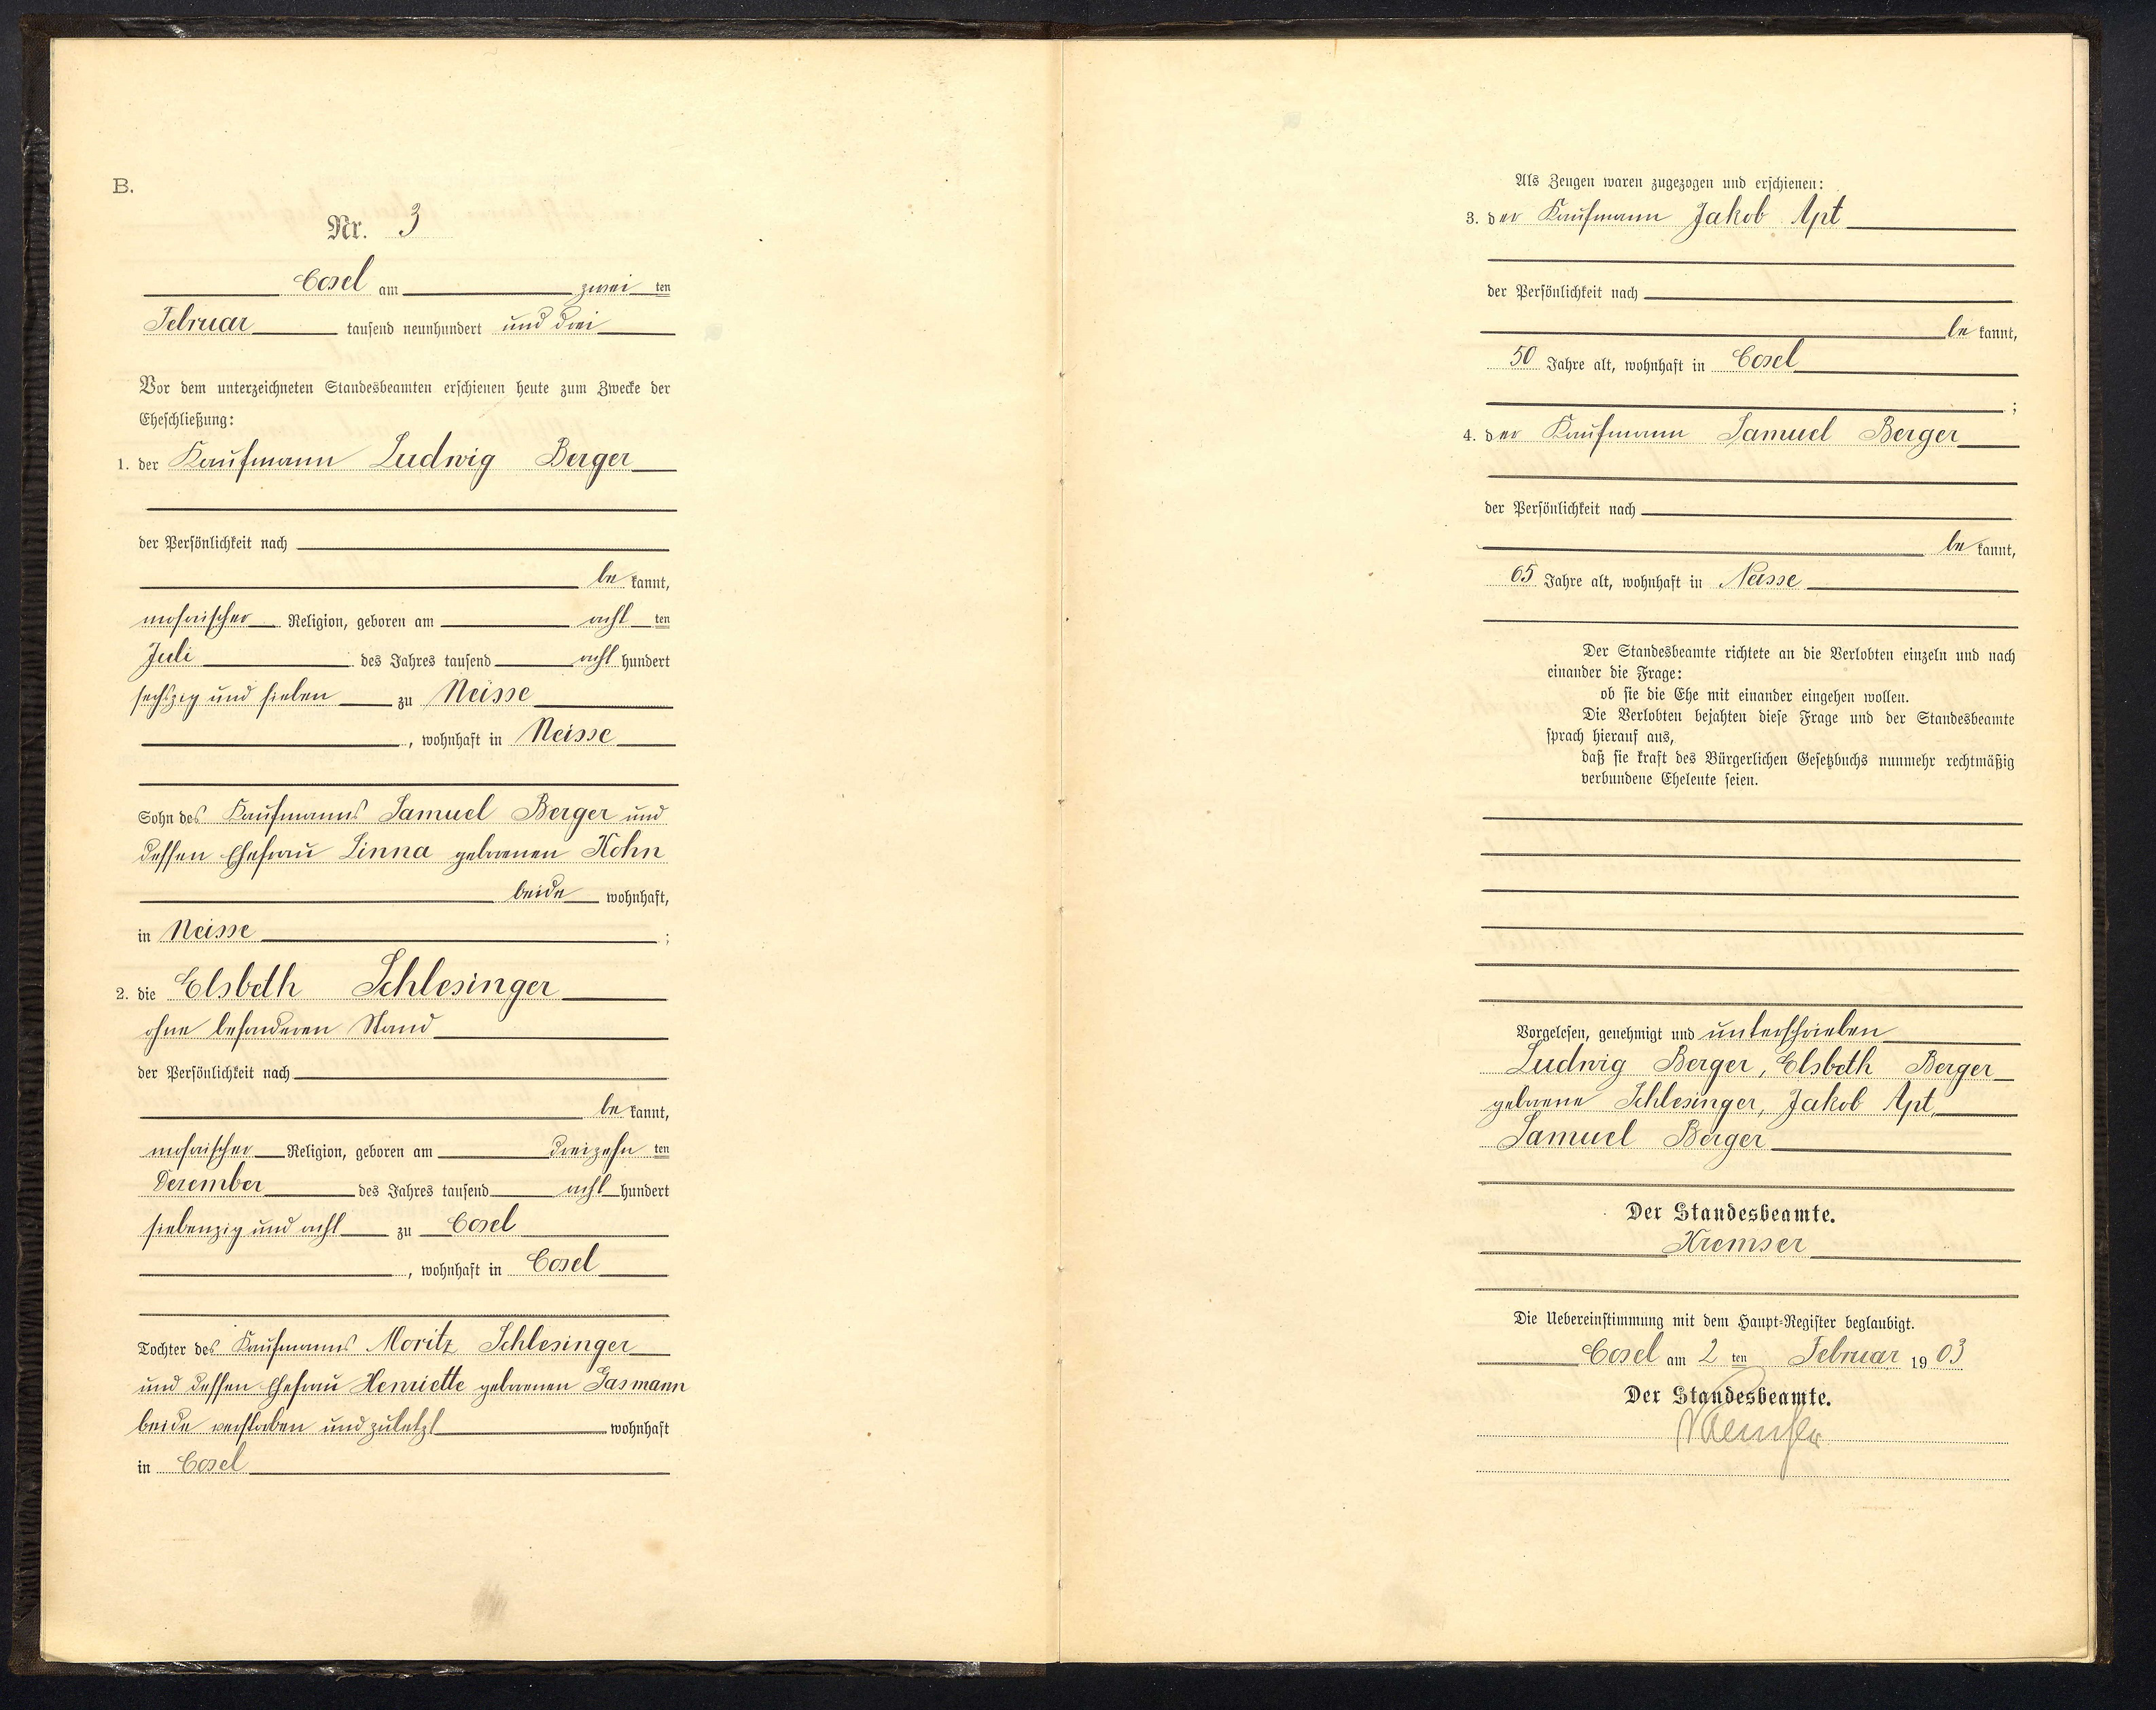 B.
Nr. 3
Cosel am zwei ten
Februar tausend neunhundert und drei
Vor dem unterzeichneten Standesbeamten erschienen heute zum Zwecke der
Eheschließung:
1. der Kaufmann Ludwig Berger
der Persönlichkeit nach
be kannt,
mosaischer Religion, geboren am acht ten
Juli des Jahres tausend acht hundert
sechszig und sieben zu Neisse
, wohnhaft in Neisse
Sohn des Kaufmanns Samuel Berger und
dessen Ehefrau Linna geborenen Kohn
beide wohnhaft,
in Neisse ;
2. die Elsbeth Schlesinger
ohne besonderen Stand
der Persönlichkeit nach
be kannt,
mosaischer Religion, geboren am dreizehn ten
Dezember des Jahres tausend acht hundert
siebenzig und acht zu Cosel
, wohnhaft in Cosel
Tochter des Kaufmanns Moritz Schlesinger
und dessen Ehefrau Henriette geborenen
beide verstorben und zuletzt wohnhaft
in Cosel
Als Zeugen waren zugezogen und erschienen:
3. der Kaufmann Jakob Apt
der Persönlichkeit nach
be kannt,
50 Jahre alt, wohnhaft in Cosel
;
4. der Kaufmann Samuel Berger
der Persönlichkeit nach
be kannt,
65 Jahre alt, wohnhaft in Neisse
Der Standesbeamte richtete an die Verlobten einzeln und nach
einander die Frage:
ob sie die Ehe mit einander eingehen wollen.
Die Verlobten bejahten diese Frage und der Standesbeamte
sprach hierauf aus,
daß sie kraft des Bürgerlichen Gesetzbuchs nunmehr rechtmäßig
verbundene Eheleute seien.
Vorgelesen, genehmigt und unterschrieben
Ludwig Berger, Elsbeth Berger
geborene Schlesinger, Jakob Apt,
Samuel Berger
Der Standesbeamte.
Kremser
Die Uebereinstimmung mit dem Haupt-Register beglaubigt.
Cosel am 2 ten Februar 19 03
Der Standesbeamte.
Kremser